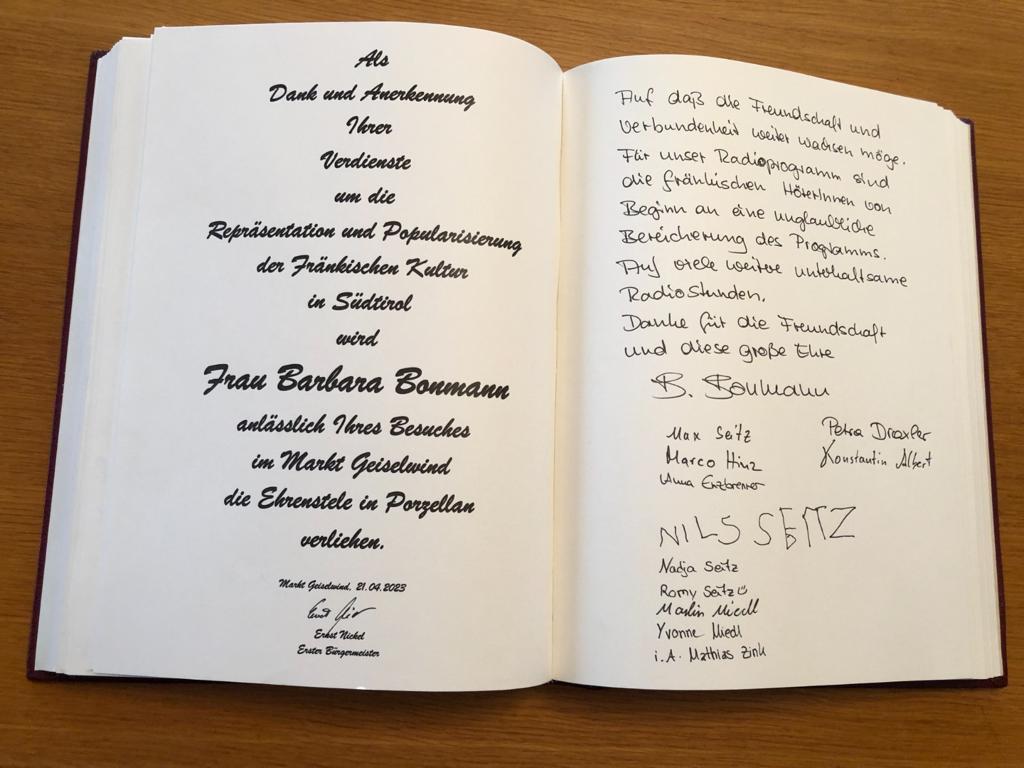 Als
Dank und Anerkennung
Ihrer
Verdienste
um die
Repräsentation und Popularisierung
der Fränkischen Kultur
in Südtirol
wird
Frau Barbara Bonmann
anlässlich Ihres Besuches
im Markt Geiselwind
die Ehrenstele in Porzellan
verliehen.
Markt Geiselwind, 21.04.2023
Ernst Nickel
Erster Bürgermeister
Auf daß die Freundschaft und
Verbundenheit weiter wachsen möge.
Für unser Radioprogramm sind
die fränkischen HörerInnen von
Beginn an eine unglaubliche
Bereicherung des Programms.
Auf viele weitere unterhaltsame
Radiostunden.
Danke für die Freundschaft
und diese große Ehre
B. Bonmann
Max Seitz
Marco Hinz
Anna
Petra Draxler
Konstantin Albert
NILS SEITZ
Nadja Seitz
Romy Seitz
Miedl
Yvonne Miedl
i.A. Mathias Zink